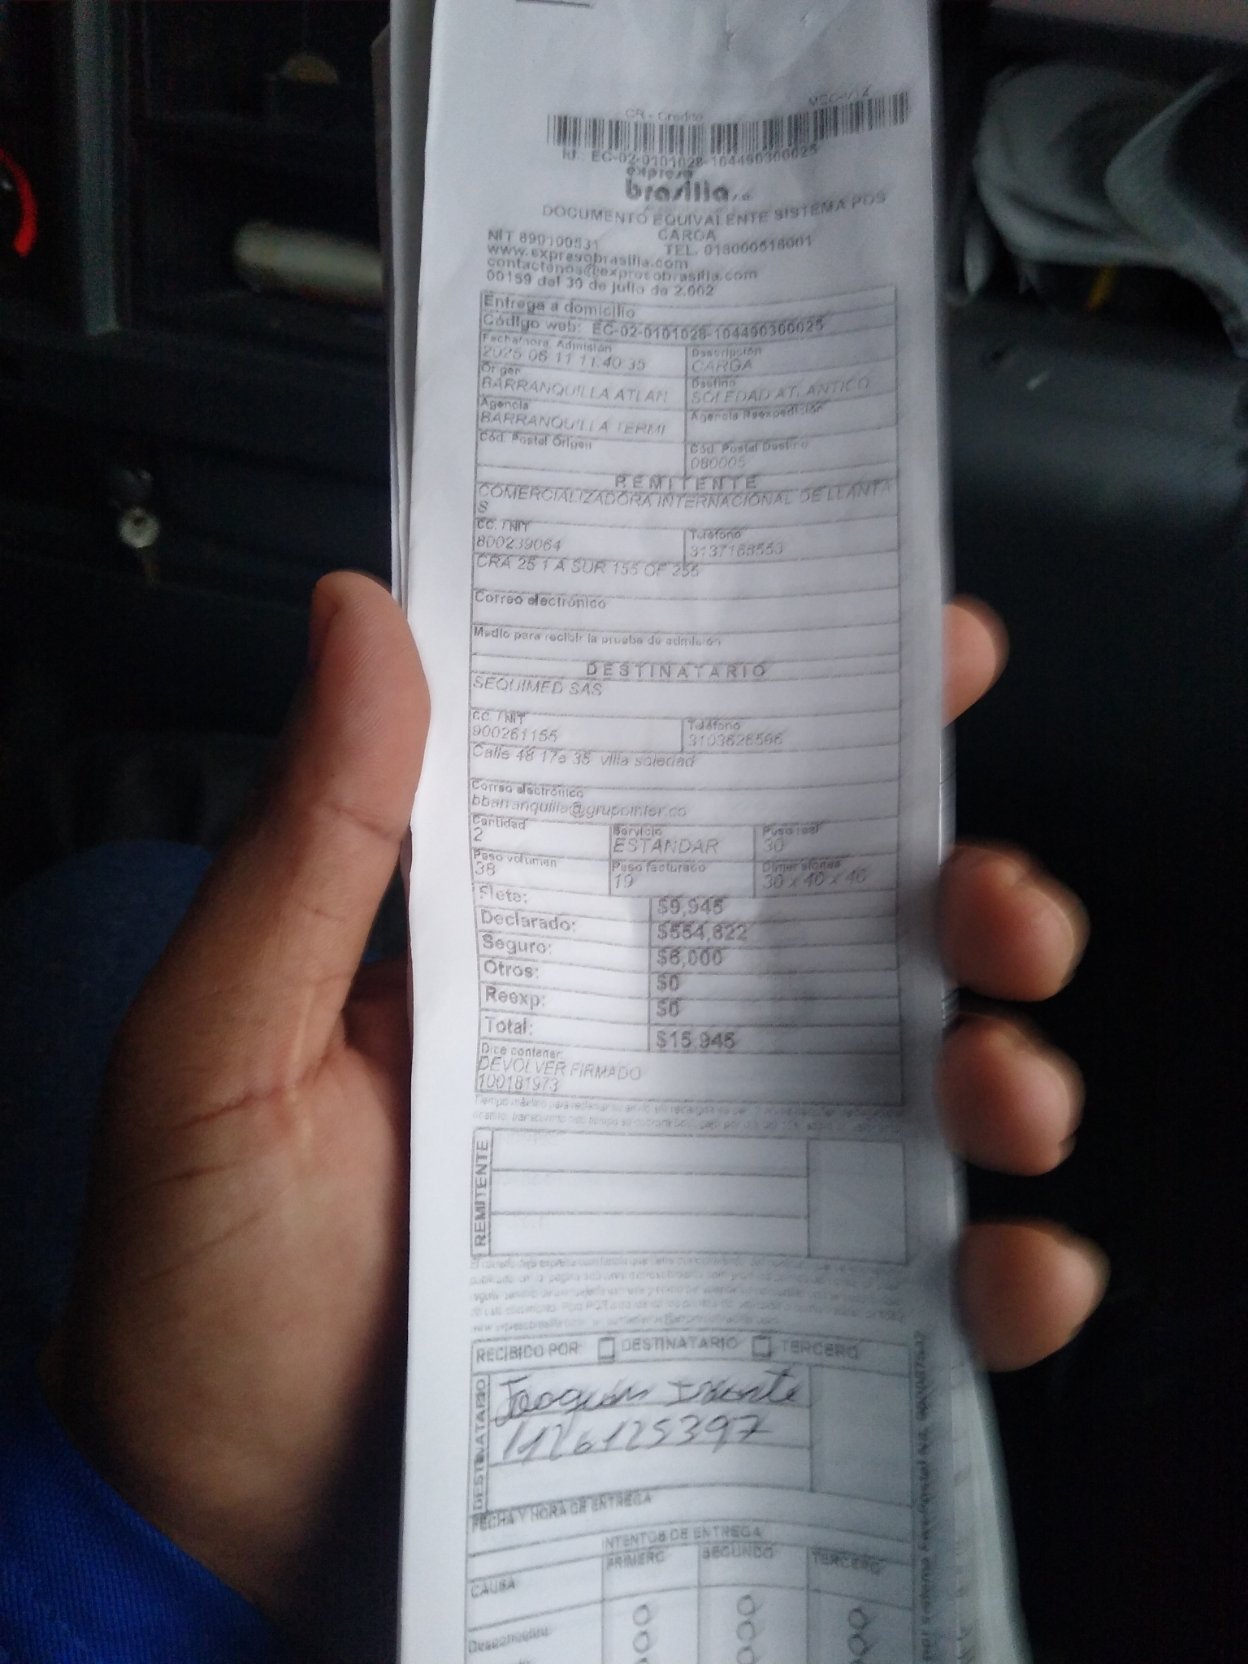 CR - Credito
Id.: EC-02-0101028-104490300025
expreso
brasilia s.a.
DOCUMENTO EQUIVALENTE SISTEMA POS
CARGA
NIT 890100531 TEL. 018000518001
www.expresobrasilia.com
contactenos@expresobrasilia.com
00159 del 30 de julio de 2.002
Entrega a domicilio
Código web: EC-02-0101028-104490300025
Fecha/hora Admisión Descripción
2025 06 11 11:40:35 CARGA
Origen Destino
BARRANQUILLA ATLAN SOLEDAD ATLANTICO
Agencia Agencia Reexpedición
BARRANQUILLA TERMI
Cód. Postal Origen Cód. Postal Destino
080005
REMITENTE
COMERCIALIZADORA INTERNACIONAL DE LLANTA
S
CC. / NIT Teléfono
800239064 3137168553
CRA 25 1 A SUR 155 OF 255
Correo electrónico
Medio para recibir la prueba de admisión
DESTINATARIO
SEQUIMED SAS
CC. / NIT Teléfono
900261155 3103626566
Calle 48 17e 35 villa soledad
Correo electrónico
bbarranquilla@grupointer.co
Cantidad Servicio Peso real
2 ESTANDAR 30
Peso volumen Peso facturado Dimensiones
38 19 30 x 40 x 40
Flete: $9,945
Declarado: $554,822
Seguro: $6,000
Otros: $0
Reexp: $0
Total: $15,945
Dice contener:
DEVOLVER FIRMADO
100181973
REMITENTE
RECIBIDO POR: DESTINATARIO TERCERO
DESTINATARIO
Joaquín Iriarte
1126125397
FECHA Y HORA DE ENTREGA
INTENTOS DE ENTREGA
CAUSA PRIMERO SEGUNDO TERCERO